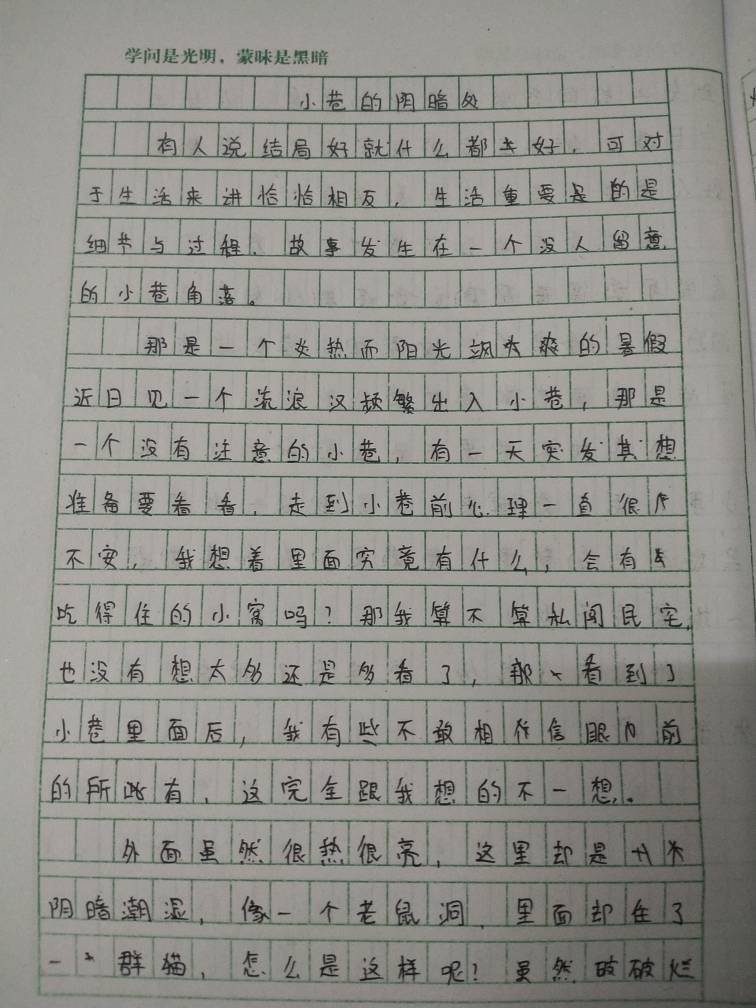 学问是光明，蒙昧是黑暗
小巷的阴暗处
有人说结局好就什么都好，可对
于生活来讲恰恰相反，生活重要是的是
细节与过程，故事发生在一个没人留意
的小巷角落。
那是一个炎热而阳光飒爽的暑假
近日见一个流浪汉频繁出入小巷，那是
一个没有注意的小巷，有一天突发其想
准备要看看，走到小巷前心理一直很
不安，我想着里面究竟有什么，会有
吃得住的小窝吗？那我算不算私闯民宅，
也没有想太多还是多看了，那一看到了
小巷里面后，我有些不敢相信眼前
的所此有，这完全跟我想的不一想。
外面虽然很热很亮，这里却是
阴暗潮湿，像一个老鼠洞，里面却住了
一群猫，怎么是这样呢？虽然破破烂